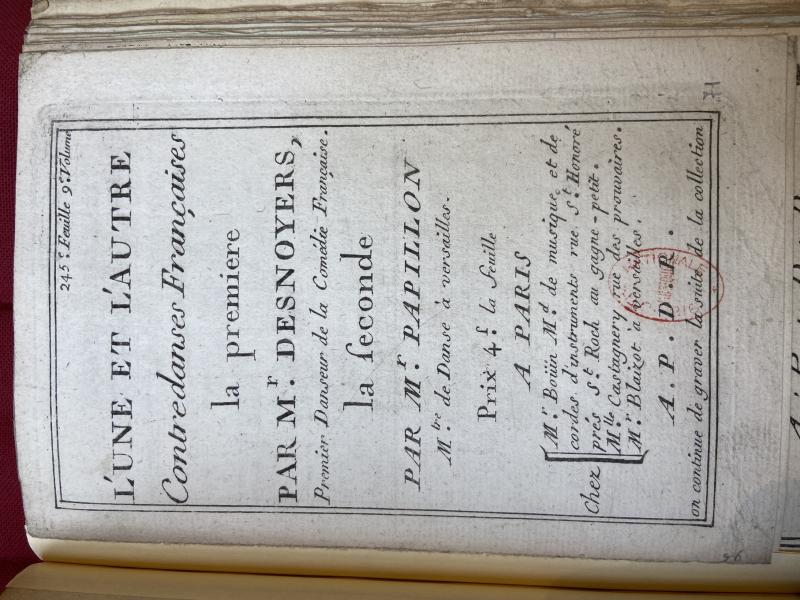 245.e Feuille 9.e Volume
L'UNE ET L'AUTRE
Contredanses Françaises
la premiere
PAR M.r DESNOYERS,
Premier Danseur de la Comédie Française.
la seconde
PAR M.r PAPILLON
M.tre de Danse à versailles.
Prix 4.s la feuille
A PARIS
M.r Boüin M.d de musique et de
cordes d'instruments rue S.t Honoré
Chez prés S.t Roch au gagne-petit.
M.lle Castagnery rue des prouvaires.
M.r Blaizot à versailles.
A. P. D. R.
on continue de graver la suite de la collection
71